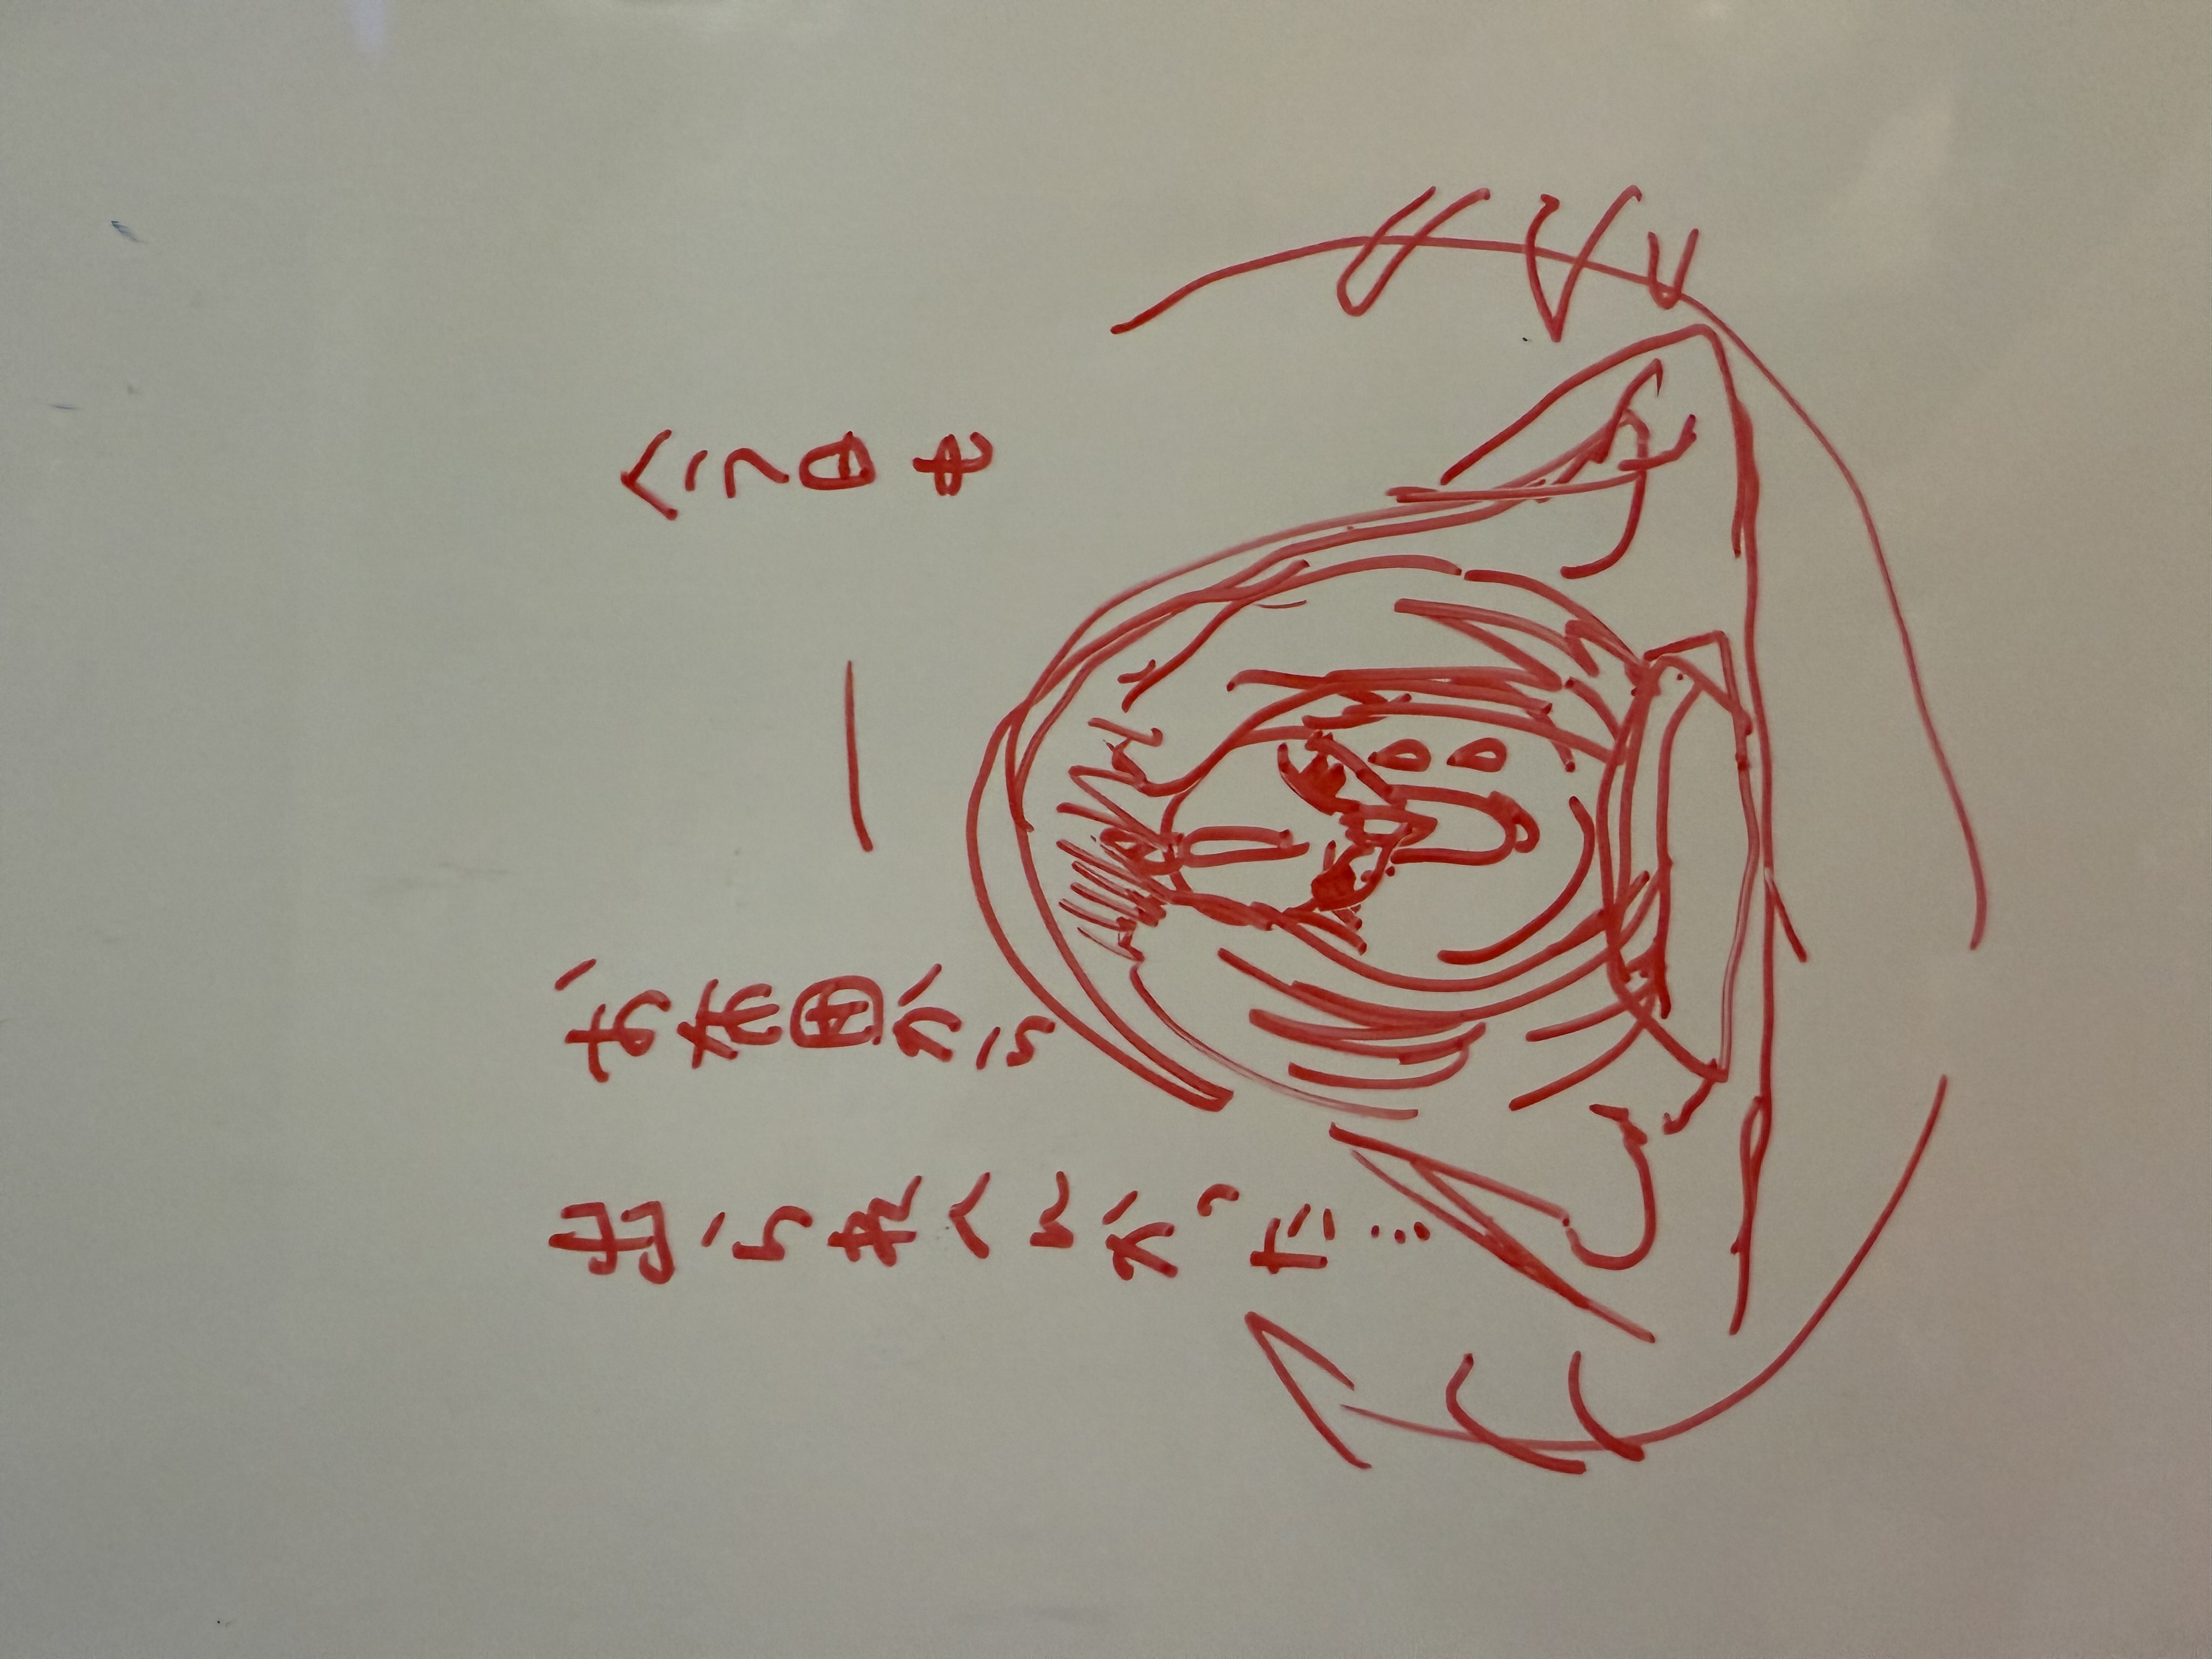 今日も
お布団から
出られへんかった…